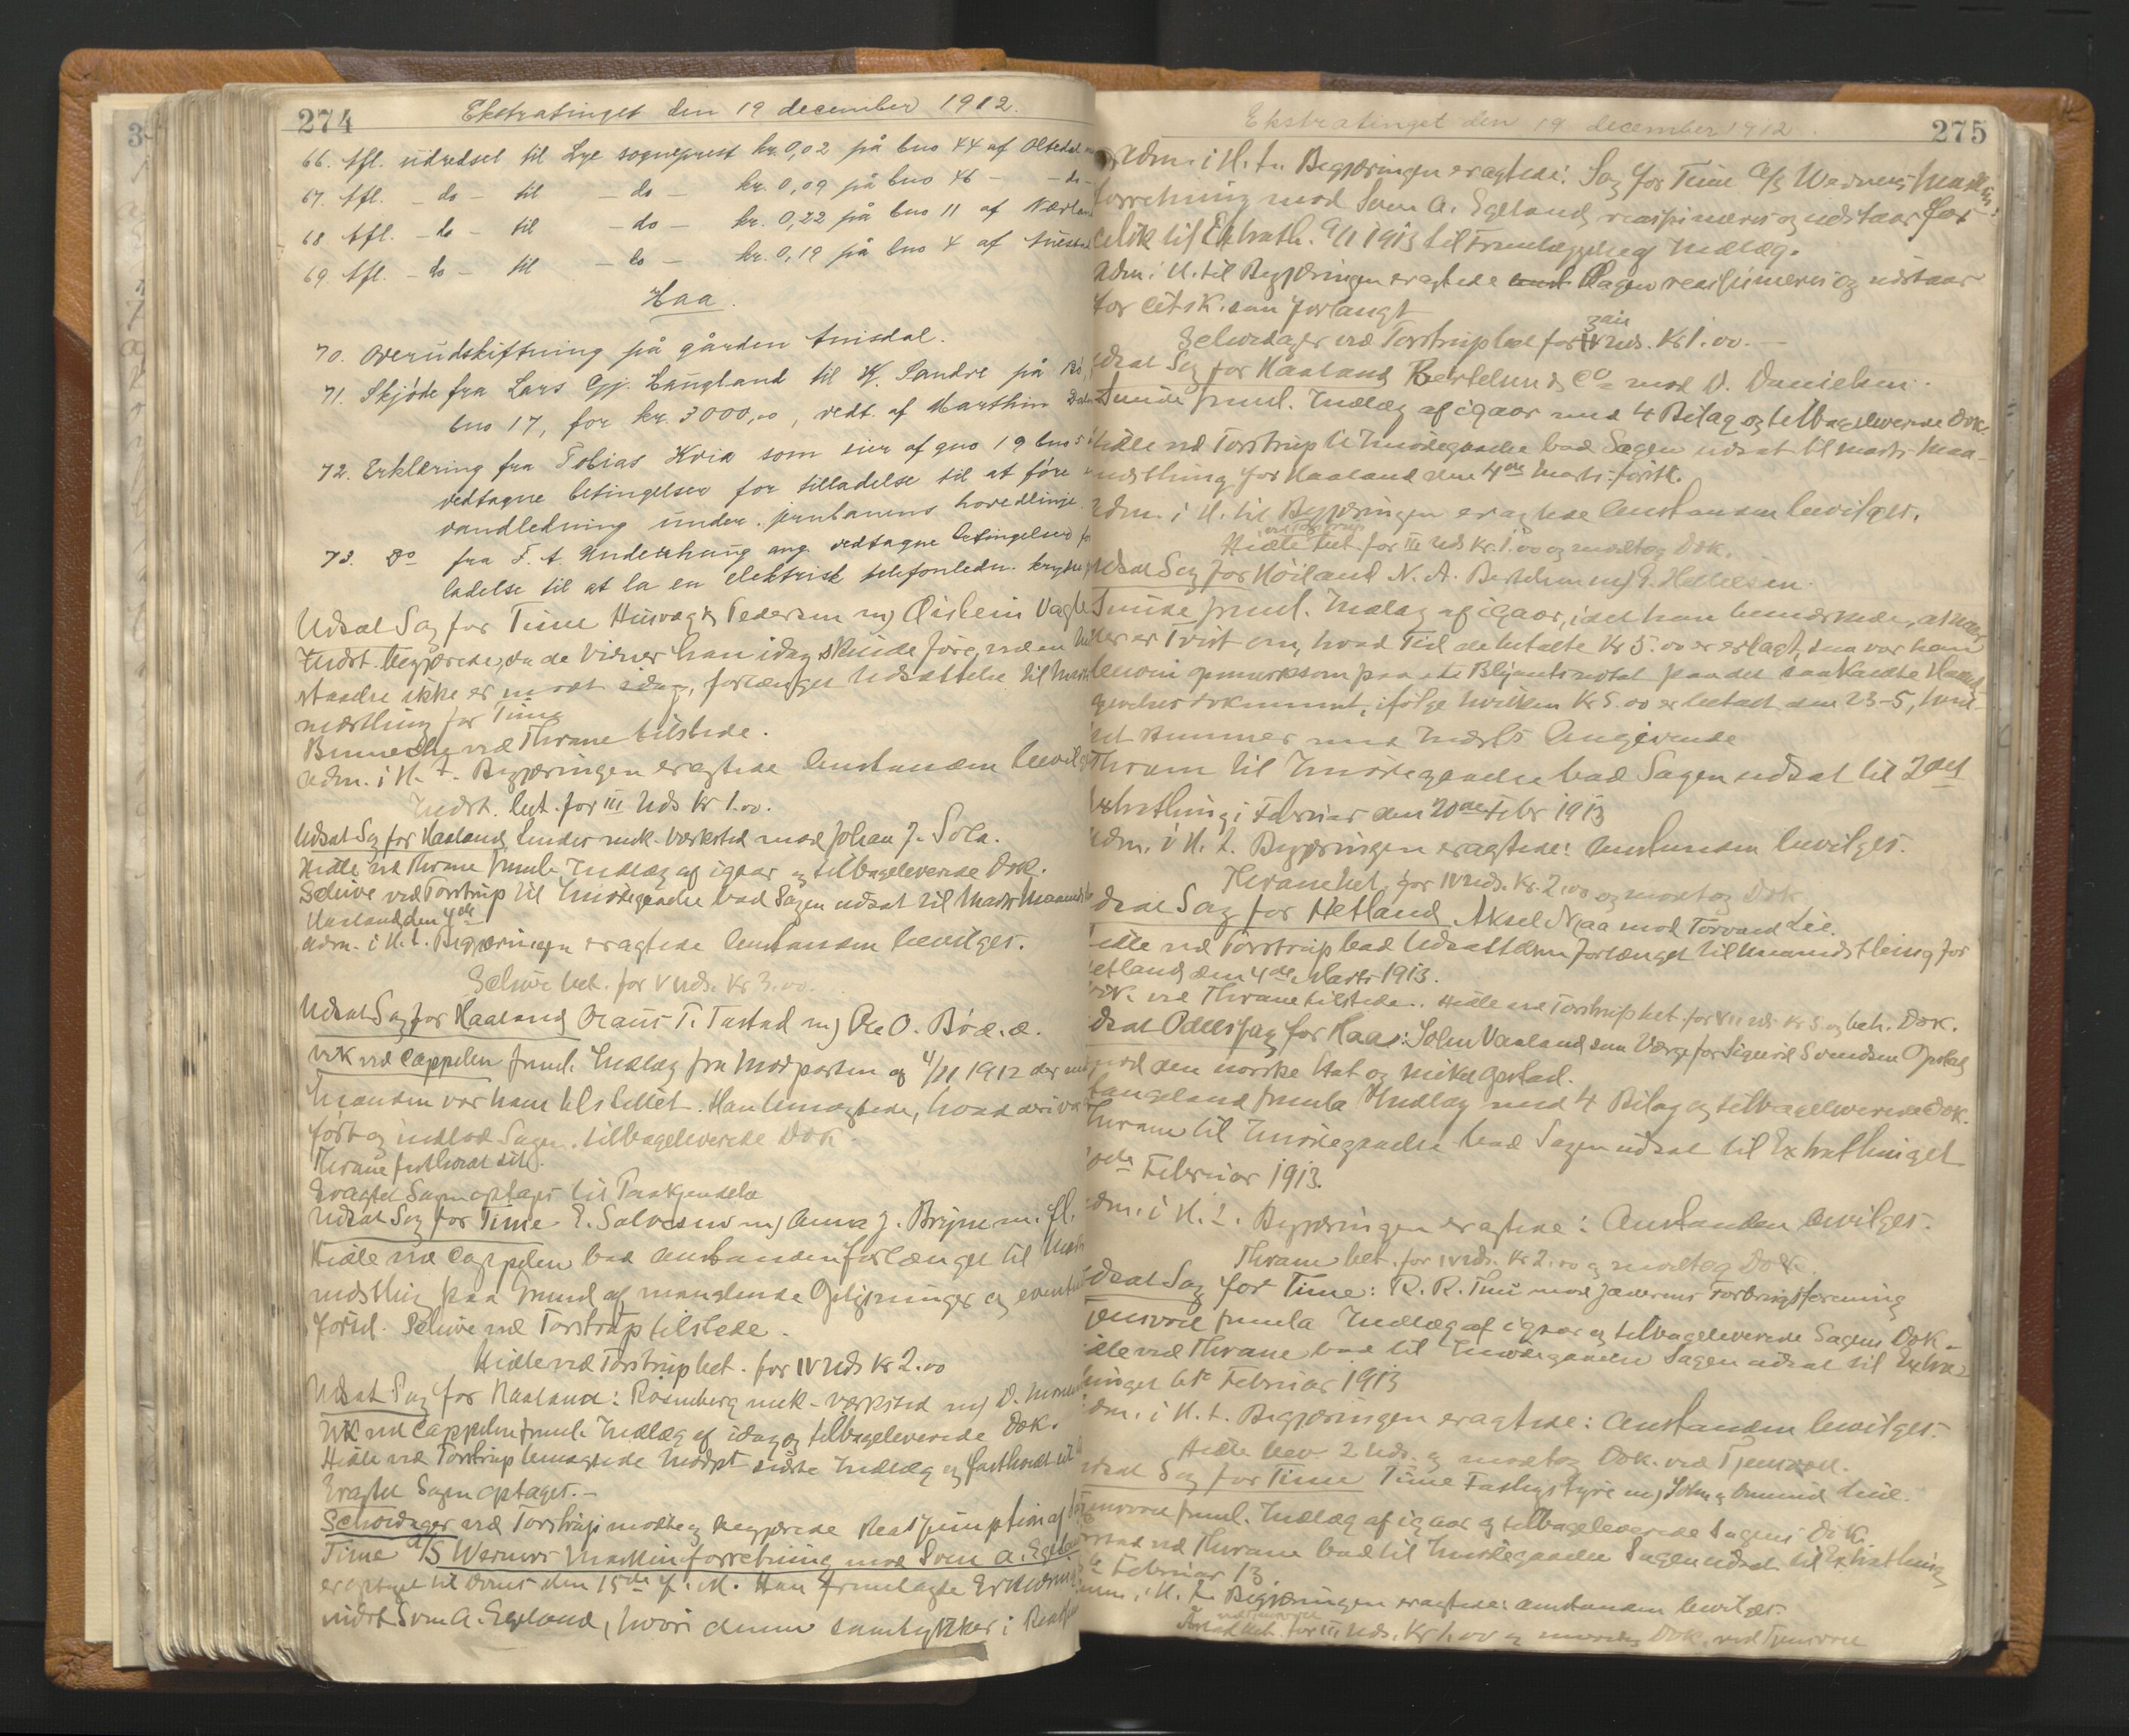 274
Ekstratinget den 19 december 1912.
66. Afl. udredsel til Lye sogneprest kr. 0,02 på bno 44 af Oltedal
67. Afl. - do - til - do - kr. 0,09 på bno 46 - - do -
68 Afl. - do - til - do - kr. 0,22 på bno 11 af Nærlan
69. Afl. - do - til - do - kr. 0,19 på bno 4 af
Haa.
70. Overudskiftning på gården Anisdal.
71. Skjøde fra Lars Gj. Haugland til K. Sandve på
bno 17, for kr. 3000,00, vedt. af Marthin
72. Erklæring fra Tobias Hvia som eier af gno 19 bno 5
vedtagne betingelser for tilladelse til at føre
vandledning under jernbanens hovedlinje.
73. Do fra F. A. Underhaug ang. vedtagne betingelser
ladelse til at la en elektrisk telefonledn. krydse
Udsat Sag for Time Husvag & Pedersen m) Øistein
Indst. begjærede, da de Vidner han idag skulde føre, ved en
ikke er mødt idag, forlænget Udsættelse til
nedsthing for Time
ved Thrane tilstede.
Adm. i H. t. Begjæringen eragtede Anstanden bevilges
Indst. bet. for III Uds Kr 1.00.
Udsat Sag for Haaland Sunder mek. Værksted mod Johan J. Sola.
Hidle ved Thrane freml. Indlæg af igaar og tilbageleverede Dok.
Schive ved Torstrup til Imødegaaelse bad Sagen udsat til Marts
Haaland den 4de
Adm. i H. t. Begjæringen eragtede Anstanden bevilges.
Schive bet. for V Uds. Kr 3.00.
Udsat Sag for Haaland Claus T. Tastad m) Ole O. Bø d. æ.
Vik ved Cappelen freml. Indlæg fra Modparten af 4/11 1912 der
var ham tilstillet. Han benægtede, hvad deri var
ført og indlod Sagen. tilbageleverede Dok.
Thrane fastholdt sit.
Eragtet Sagen optages til Paakjendelse
Udsat Sag for Time E. Salvesen m) Anna J. Bryne m. fl.
Hidle ved Cappelen bad Anstanden forlænget til
nedsthing paa Grund af manglende Oplysninger og
forlig. Schive ved Torstrup tilstede.
Hidle ved Torstrup bet. for IV Uds Kr 2.00
Udsat Sag for Haaland: Rosenberg mek. værksted m) O.
Vik ved Cappelen freml. Indlæg af idag og tilbageleverede Dok.
Hidle ved Torstrup benægtede Modpt sidste Indlæg og fastholdt sit
Eragtet Sagen optaget.-
Schiødager ved Torstrup mødte og begjærede Reassumption af
Time A/S Werners Maskinforretning mod Sven A. Egeland
er optaget til Doms den 15de f. M. Han fremlagde Erklæring
indst Sven A. Egeland, hvori denne samtykker i
275
Ekstratinget den 19 december 1912.
Adm. i H. t. Begjæringen eragtede: Sag for Time A/S Werners Maskin
forretning mod Sven A. Egeland reassumeres og udstaar for
til Extrath. 9/1 1913 til Fremlæggelse af Indlæg.
Adm. i H. til Begjæringen eragtede Sagen reassumeres og udstaar
for som forlangt
Schiødager ved Torstrup bet for Uds. Kr 1.00.
Udsat Sag for Haaland Bertelsen & Co mod O. Danielsen.
freml. Indlæg af igaar med 4 Bilag og tilbageleverede Dok.
Hidle ved Torstrup til Imødegaaelse bad Sagen udsat til Marts Maa-
nedsthing for Haaland den 4de Marts førstk.
Adm. i H. til Begjæringen eragtede Anstanden bevilges.
ved Torstrup
Hidle bet. for III Uds Kr. 1.00 og modtog Dok.
Udsat Sag for Høiland N. A. Bertelsen m) G. Hellelsen.
freml. Indlæg af igaar, idet han bemærkede, at
der er Tvist om, hvad Tid de betalte Kr 5.00 er erlagt, saa var han
opmærksom paa Blyantsnotat paa det saakaldte
dokument, ifølge hvilken Kr 5.00 er betalt den 23-5, hvil-
ket stemmer med Indsts Angivende
Thrane til Imødegaaelse bad Sagen udsat til 2det
Extrathing i Februar den 20de Febr 1913
Adm. i H. t. Begjæringen eragtede: Anstanden bevilges.
Thrane bet. for IV Uds. Kr. 2.00 og modtog Dok
Udsat Sag for Hetland Aksel Naa mod Torvald Lie.
Hidle ved Torstrup bad Udsættelsen forlænget til Maanedsthing for
Hetland den 4de Marts 1913.
Vik ved Thrane tilstede. Hidle ved Torstrup bet. for VII Uds Kr 5. og beh. Dok.
Udsat Odelssag for Haa: John Varland som Værge for Sigurd Svendsen Opstad
mod den norske Stat og Mikal Opstad.
Tangeland freml. Indlæg med 4 Bilag og tilbageleverede Dok.
Thrane til Imødegaaelse bad Sagen udsat til Extrathinget
Februar 1913.
Adm. i H. t. Begjæringen eragtede: Anstanden bevilges.
Thrane bet. for IV Uds. Kr 2.00 og modtog Dok.
Udsat Sag for Time: R. R. Thu mod Jæderens Fordringsforening
Tjensvoll freml. Indlæg af igaar og tilbageleverede Sagens Dok.
Hidle ved Thrane bad til Imødegaaelse Sagen udsat til Extra-
thinget 6te Februar 1913
Adm. i H. t. Begjæringen eragtede: Anstanden bevilges.
Hidle 2 Uds. og modtog Dok. ved Tjensvoll.
Udsat Sag for Time Time Fattigstyre m) John & Omund Line.
Tjensvoll freml. Indlæg af igaar og tilbageleverede Sagens Dok.
ved Thrane bad til Imødegaaelse Sagen udsat til Extrathing
Februar 13.
Adm. i H. t. Begjæringen eragtede: Anstanden bevilges.
bet. for III Uds. Kr 1.00 og modtog Dok. ved Tjensvoll